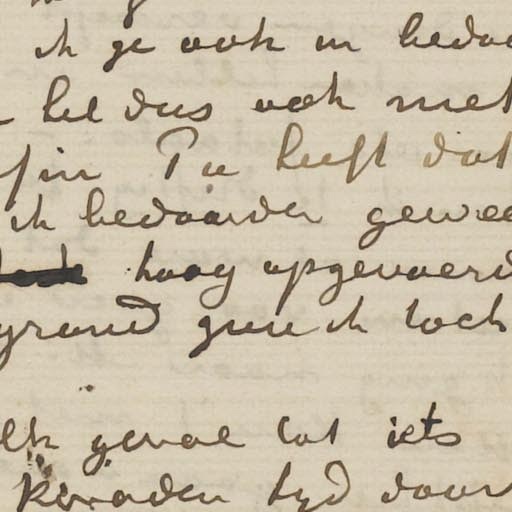 ik ge ook in bedaa
hel dus ook met
fin Pa heeft dat
ik bedaarder gewee
hoog opgevoerd
grond zou ik toch
elk geval tot iets
Kwaden tyd door